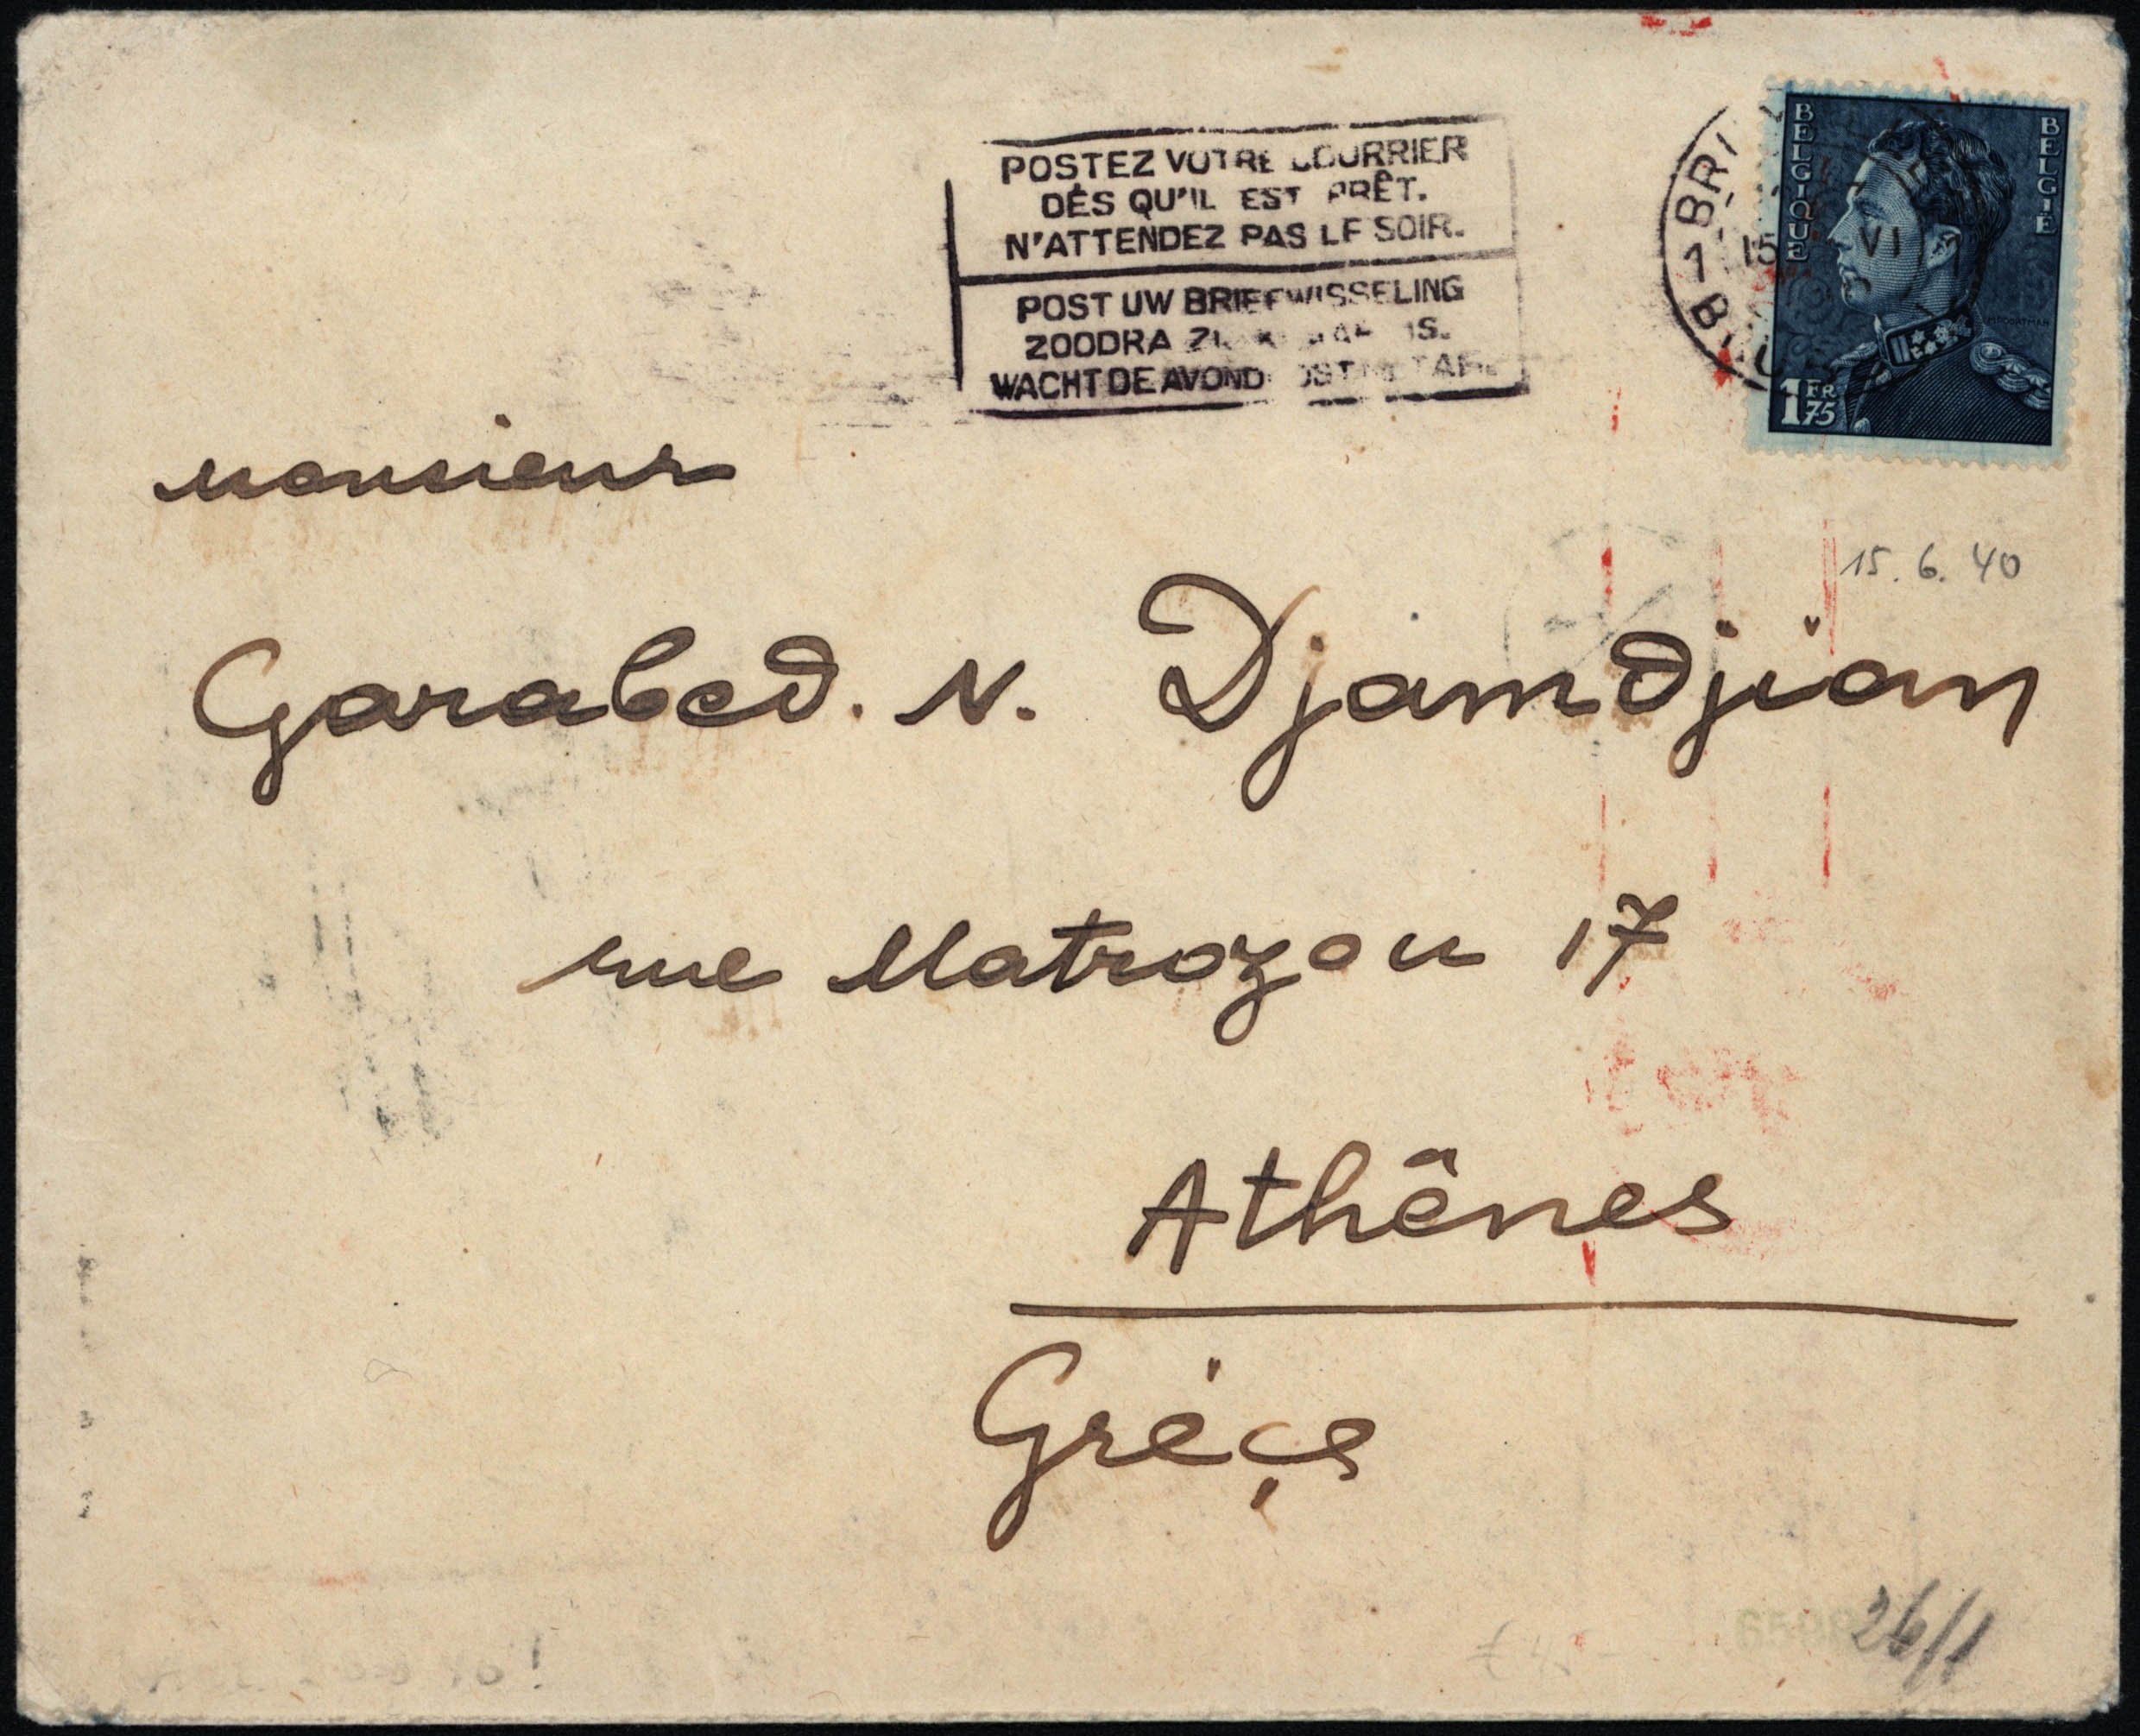 POSTEZ VOTRE COURRIER
DÈS QU'IL EST PRÊT.
N'ATTENDEZ PAS LE SOIR.
POST UW BRIEFWISSELING
ZOODRA ZIJ IS.
WACHT DE AVOND
BELGIQUE
BELGIE
15 VI
1 FR 75
monsieur
15.6.40
Garabed. N. Djamdjian
rue Matrozou 17
Athênes
Grèçe
26/1